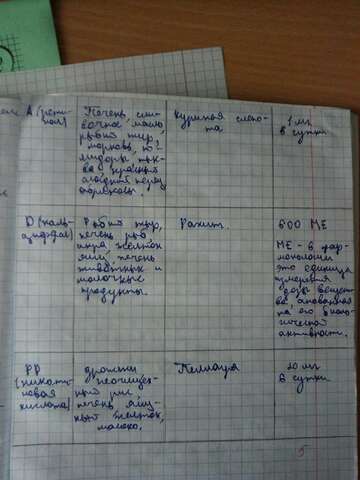 А (рети-
нол)
Печень, сли-
вочное масло,
рыбий жир,
морковь, по-
мидоры, тык-
ва, красный
сладкий перец
Куриная слепо-
та
1 мг
в сутки
D (каль-
циферол)
Рыбий жир,
печень рыб
икра, желток
яиц, печень
животных и
молочные
продукты.
Рахит.
500 МЕ
МЕ - в фар-
мокологии
это единица
измерения
дозы вещест-
ва, основанная
на его биоло-
гической
активности.
РР
(никоти-
новая
кислота)
дрожжи
неочищен-
ный рис,
печень, яич-
ный желток,
молоко.
Пеллагра
20 мг
в сутки
5